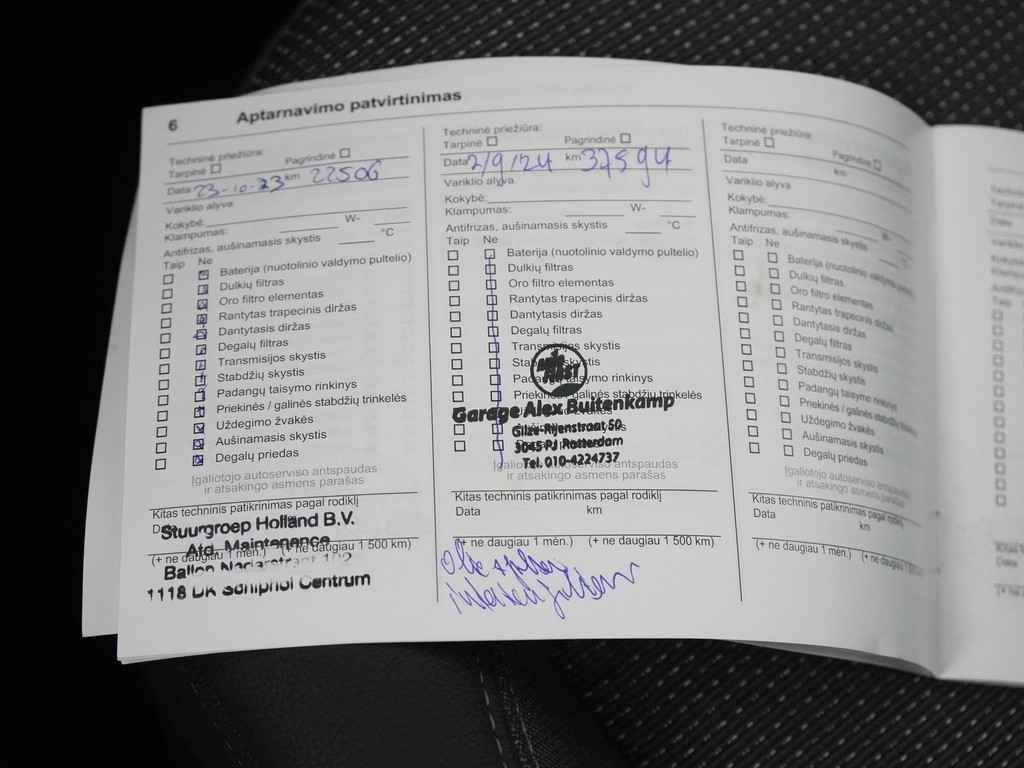 6 Aptarnavimo patvirtinimas
Techninė priežiūra:
Tarpinė Pagrindinė
Data 23-10-23 km 22506
Variklio alyva
Kokybė:
Klampumas: W-
Antifrizas, aušinamasis skystis °C
Taip Ne
Baterija (nuotolinio valdymo pultelio)
Dulkių filtras
Oro filtro elementas
Rantytas trapecinis diržas
Dantytasis diržas
Degalų filtras
Transmisijos skystis
Stabdžių skystis
Padangų taisymo rinkinys
Priekinės / galinės stabdžių trinkelės
Uždegimo žvakės
Aušinamasis skystis
Degalų priedas
Įgaliotojo autoserviso antspaudas
ir atsakingo asmens parašas
Kitas techninis patikrinimas pagal rodiklį
Stuurgroep Holland B.V.
Atd. Maintenance
(+ ne daugiau 1 mėn.) (+ ne daugiau 1 500 km)
1118 DK Schiphol Centrum
Techninė priežiūra:
Tarpinė Pagrindinė
Data 2/9/24 km 37594
Variklio alyva
Kokybė:
Klampumas: W-
Antifrizas, aušinamasis skystis °C
Taip Ne
Baterija (nuotolinio valdymo pultelio)
Dulkių filtras
Oro filtro elementas
Rantytas trapecinis diržas
Dantytasis diržas
Degalų filtras
Transmisijos skystis
Stabdžių skystis
Padangų taisymo rinkinys
Priekinės / galinės stabdžių trinkelės
Garage Alex Buitenkamp
Gilze-Rijenstraat 50
3045 PJ Rotterdam
Tel. 010-4224737
Įgaliotojo autoserviso antspaudas
ir atsakingo asmens parašas
Kitas techninis patikrinimas pagal rodiklį
Data km
(+ ne daugiau 1 mėn.) (+ ne daugiau 1 500 km)
Techninė priežiūra:
Tarpinė Pagrindinė
Data km
Variklio alyva
Kokybė:
Klampumas: W-
Antifrizas, aušinamasis skystis °C
Taip Ne
Baterija (nuotolinio valdymo pultelio)
Dulkių filtras
Oro filtro elementas
Rantytas trapecinis diržas
Dantytasis diržas
Degalų filtras
Transmisijos skystis
Stabdžių skystis
Padangų taisymo rinkinys
Priekinės / galinės stabdžių trinkelės
Uždegimo žvakės
Aušinamasis skystis
Degalų priedas
Įgaliotojo autoserviso antspaudas
ir atsakingo asmens parašas
Kitas techninis patikrinimas pagal rodiklį
Data km
(+ ne daugiau 1 mėn.) (+ ne daugiau 1 500 km)